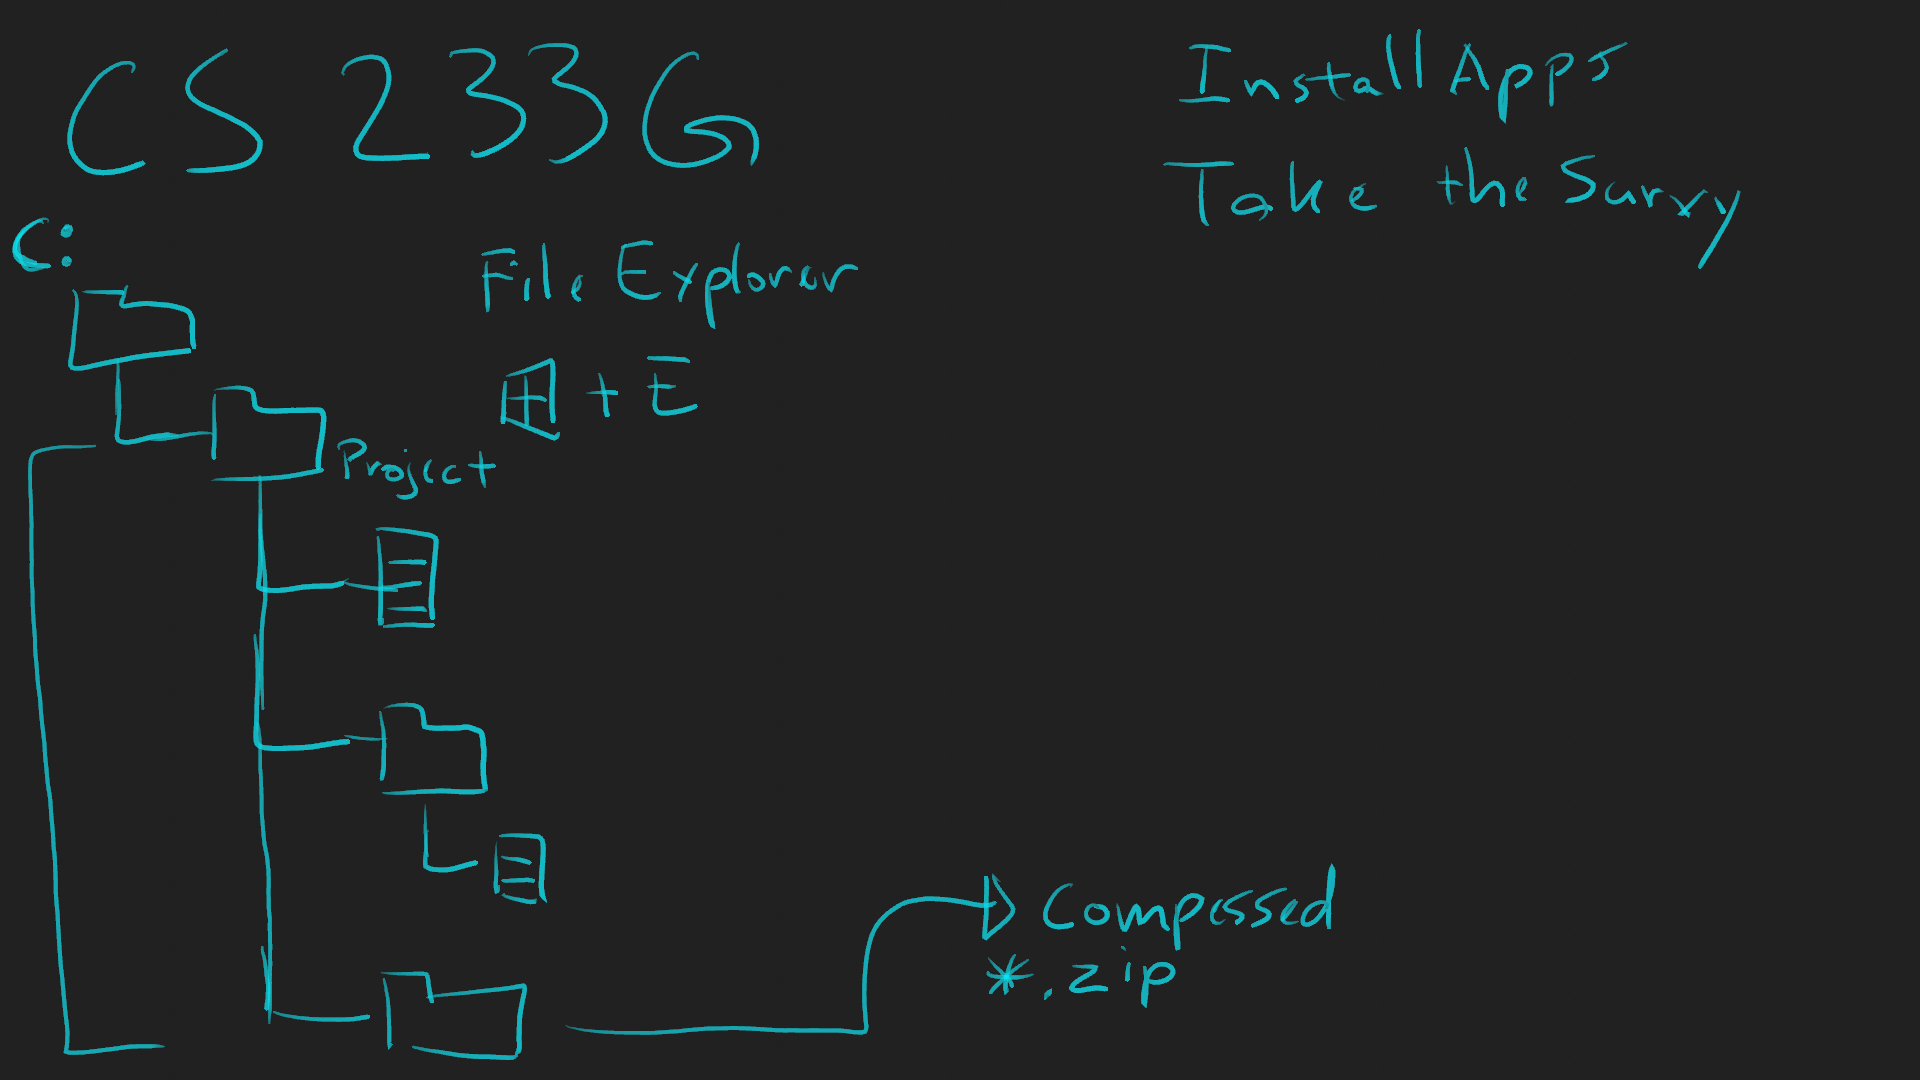 CS 233G
Install Apps
Take the Survy
C:
File Explorer
+ E
Project
Compessed
*.zip